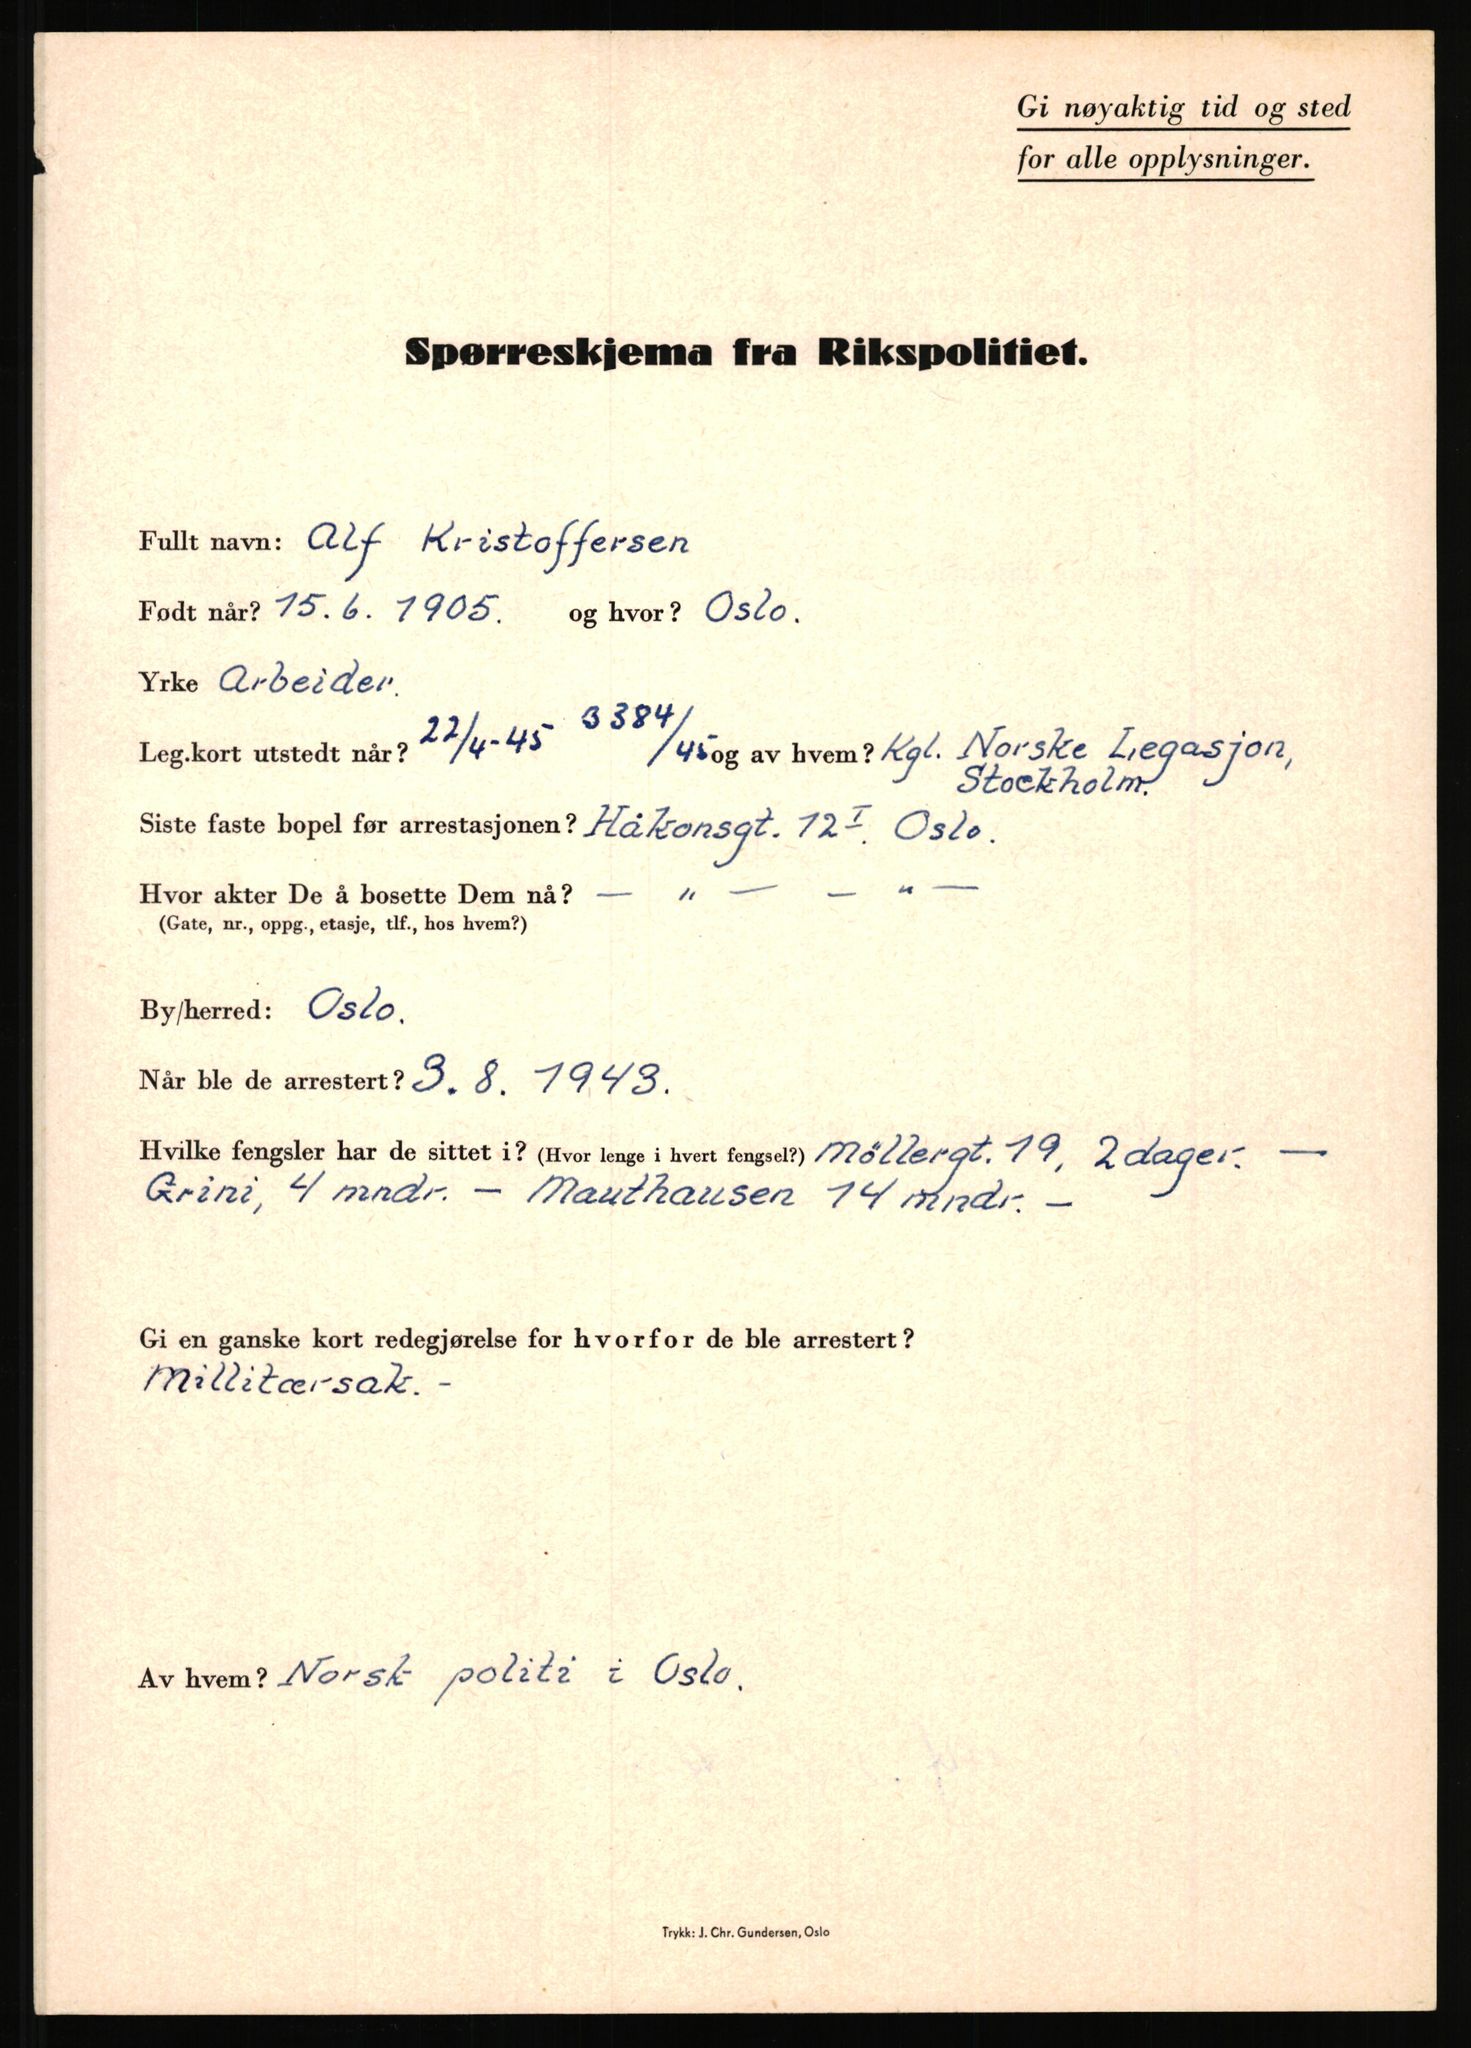 Gi nøyaktig tid og sted
for alle opplysninger.
Spørreskjema fra Rikspolitiet.
Fullt navn: Alf Kristoffersen
Født når? 15. 6. 1905. og hvor? Oslo.
Yrke Arbeider.
Leg.kort utstedt når? 22/4-45 3384/45 og av hvem? Kgl. Norske Legasjon,
Stockholm.
Siste faste bopel før arrestasjonen? Håkonsgt. 12 I. Oslo.
Hvor akter De å bosette Dem nå? — " — — " —
(Gate, nr., oppg., etasje, tlf., hos hvem?)
By/herred: Oslo.
Når ble de arrestert? 3. 8. 1943.
Hvilke fengsler har de sittet i? (Hvor lenge i hvert fengsel?) Möllergt. 19, 2 dager. —
Grini, 4 mndr. — Mauthausen 14 mndr. —
Gi en ganske kort redegjørelse for hvorfor de ble arrestert?
Millitærsak. -
Av hvem? Norsk politi i Oslo.
Trykk: J. Chr. Gundersen, Oslo